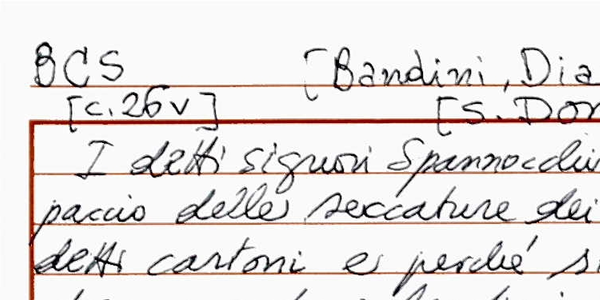 BCS [Bandini, Dia
[c. 26v] [S. Dom
I detti signori Spannocchi
paccio delle seccature dei
detti cartoni e perché si